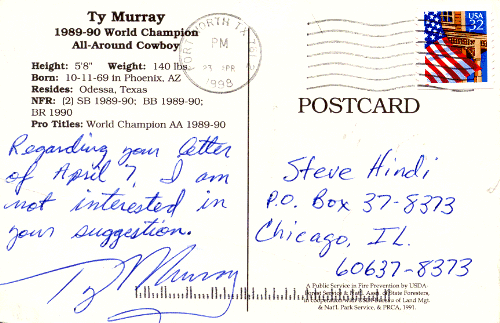 Ty Murray
1989-90 World Champion
All-Around Cowboy
Height: 5'8" Weight: 140 lbs.
Born: 10-11-69 in Phoenix, AZ
Resides: Odessa, Texas
NFR: (2) SB 1989-90; BB 1989-90;
BR 1990
Pro Titles: World Champion AA 1989-90
Regarding your letter
of April 7, I am
not interested in
your suggestion.
Ty Murray
FORT WORTH TX
PM
APR
1998
USA
32
POSTCARD
Steve Hindi
P.O. Box 37-8373
Chicago, IL.
60637-8373
A Public Service in Fire Prevention by USDA
Forest Service & Nat'l. Assn. of State Foresters,
in cooperation with of Land Mgt.
& Nat'l. Park Service, & PRCA, 1991.